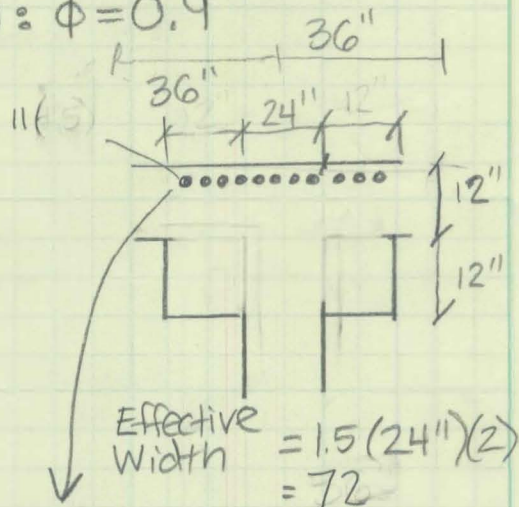 : Φ = 0.9
36"
36" 24" 12"
11(
12"
12"
Effective
Width = 1.5(24")(2)
= 72